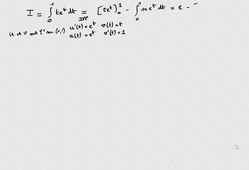 I = ∫₀¹ te^t dt = [te^t]₀¹ - ∫₀¹ 1×e^t dt = e -
IPP
u et v sont C¹ sur [0,1] u'(t) = e^t v(t) = t
u(t) = e^t v'(t) = 1